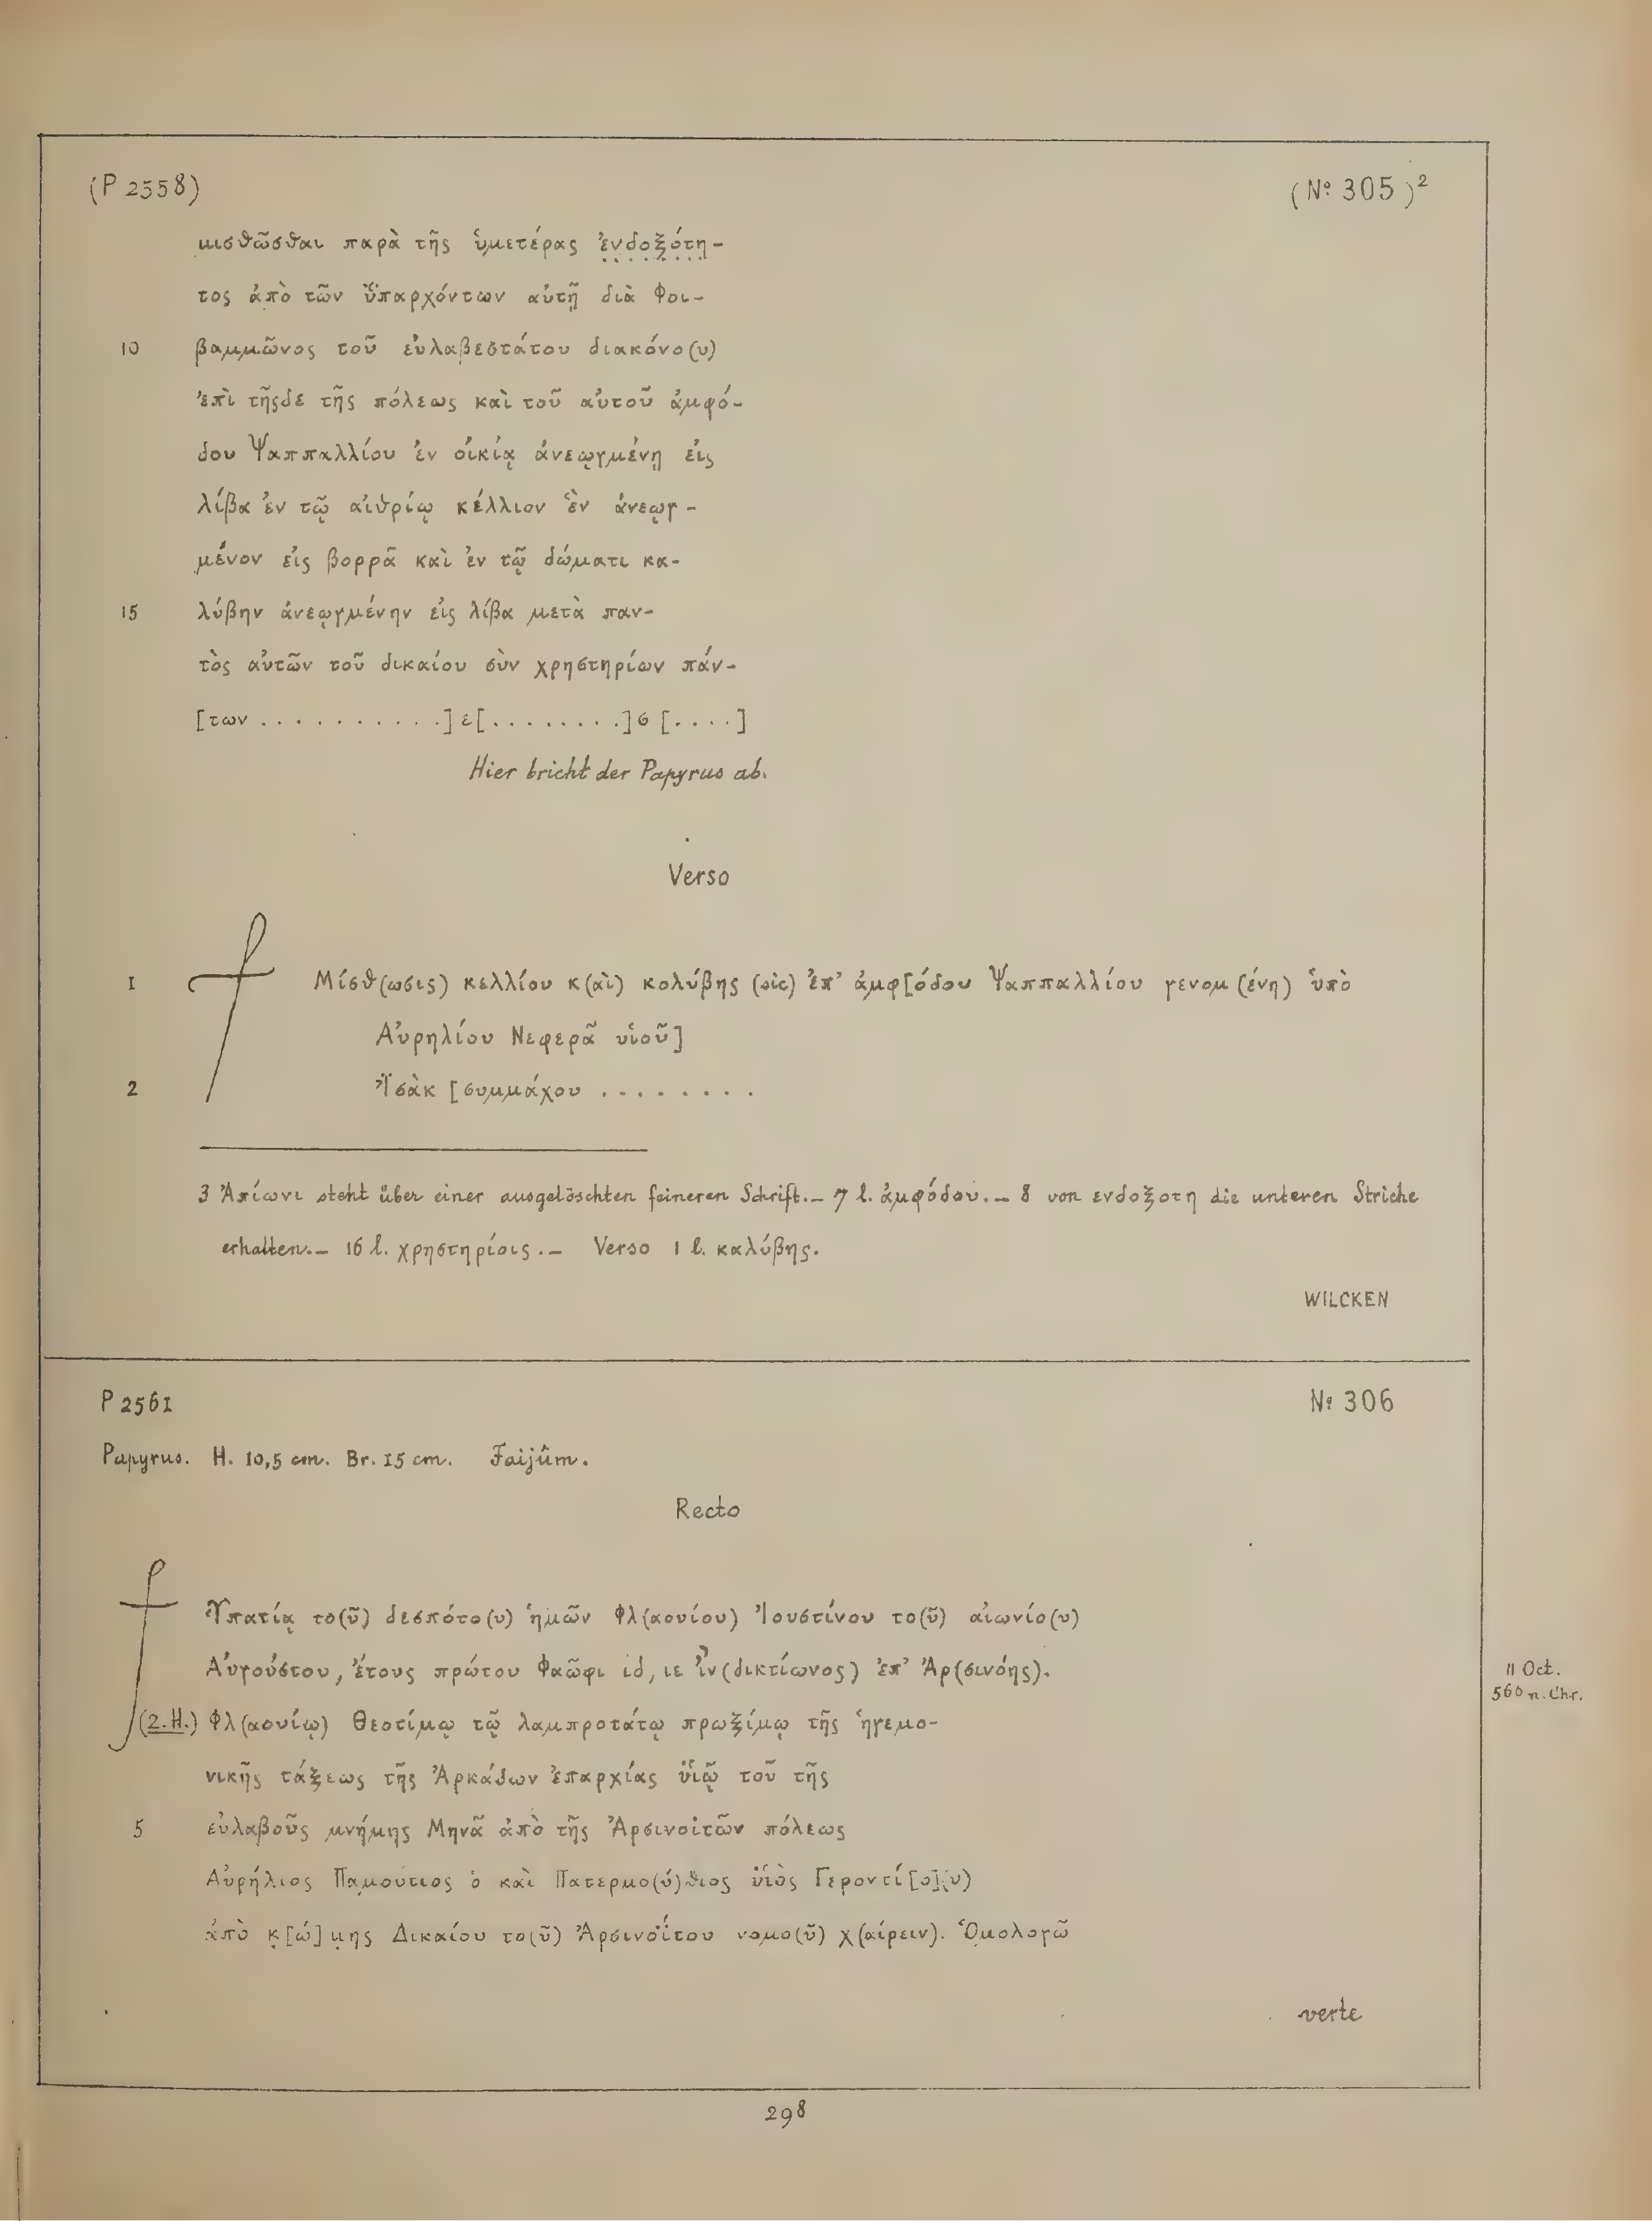 (P 2558)
(Nº 305)²
μισθῶσθαι παρὰ τῆς ὑμετέρας ἐ̣ν̣δ̣ο̣ξ̣ό̣τ̣η̣-
τος ἀπὸ τῶν ὕ̈παρχόντων αὐτῇ διὰ Φοι-
10 βαμμῶνος τοῦ εὐλαβεστάτου διακόνο(υ)
ἐπὶ τῆςδε τῆς πόλεως καὶ τοῦ αὐτοῦ ἀμφό-
δου Ψαππαλλίου ἐν οἰκίᾳ ἀνεῳγμένῃ εἰς
λίβα ἐν τῷ αἰθρίῳ κέλλιον ἓν ἀνεῳγ-
μένον εἰς βορρᾶ καὶ ἐν τῷ δώματι κα-
15 λύβην ἀνεῳγμένην εἰς λίβα μετὰ παν-
τὸς αὐτῶν τοῦ δικαίου σὺν χρηστηρίων πάν-
[των . . . . . . . . . .] ε [. . . . . . . .] σ [. . . .]
Hier bricht der Papyrus ab.
Verso
1 Μίσθ(ωσις) κελλίου κ(αὶ) κολύβης (sic) ἐπ’ ἀμφ[όδου Ψαππαλλίου γενομ(ένη) ὑπὸ
Αὐρηλίου Νεφερᾶ υἱοῦ]
2 Ἰ̈σὰκ [συμμάχου . . . . . . . .
3 Ἀπίωνι steht über einer ausgelöschten feineren Schrift.– 7 l. ἀμφόδου.– 8 von ενδοξοτη die unteren Striche
erhalten.– 16 l. χρηστηρίοις.– Verso 1 l. καλύβης.
WILCKEN
P 2561
Nº 306
Papyrus. H. 10,5 cm. Br. 15 cm. Faijûm.
Recto
Ὑπατίᾳ το(ῦ) δεσπότο(υ) ἡμῶν Φλ(αουίου) Ἰουστίνου το(ῦ) αἰωνίο(υ)
Αὐγούστου, ἔτους πρώτου Φαῶφι ιδ, ιε ἰν(δικτίωνος) ἐπ’ Ἀρ(σινόης).
11 Oct.
560 n. Chr.
(2. H.) Φλ(αουίῳ) Θεοτίμῳ τῷ λαμπροτάτῳ πρωξίμῳ τῆς ἡγεμο-
νικῆς τάξεως τῆς Ἀρκάδων ἐπαρχίας ὑ̈ιῷ τοῦ τῆς
5 εὐλαβοῦς μνήμης Μηνᾶ ἀπὸ τῆς Ἀρσινοϊτῶν πόλεως
Αὐρήλιος Παμούτιος ὁ καὶ Πατερμο(ύ)θιος ὑ̈ιὸς Γεροντί[ο](υ)
ἀπὸ κ̣[ώ]μ̣ης Δικαίου το(ῦ) Ἀρσινοΐτου νομο(ῦ) χ(αίρειν). Ὁμολογῶ
verte
298